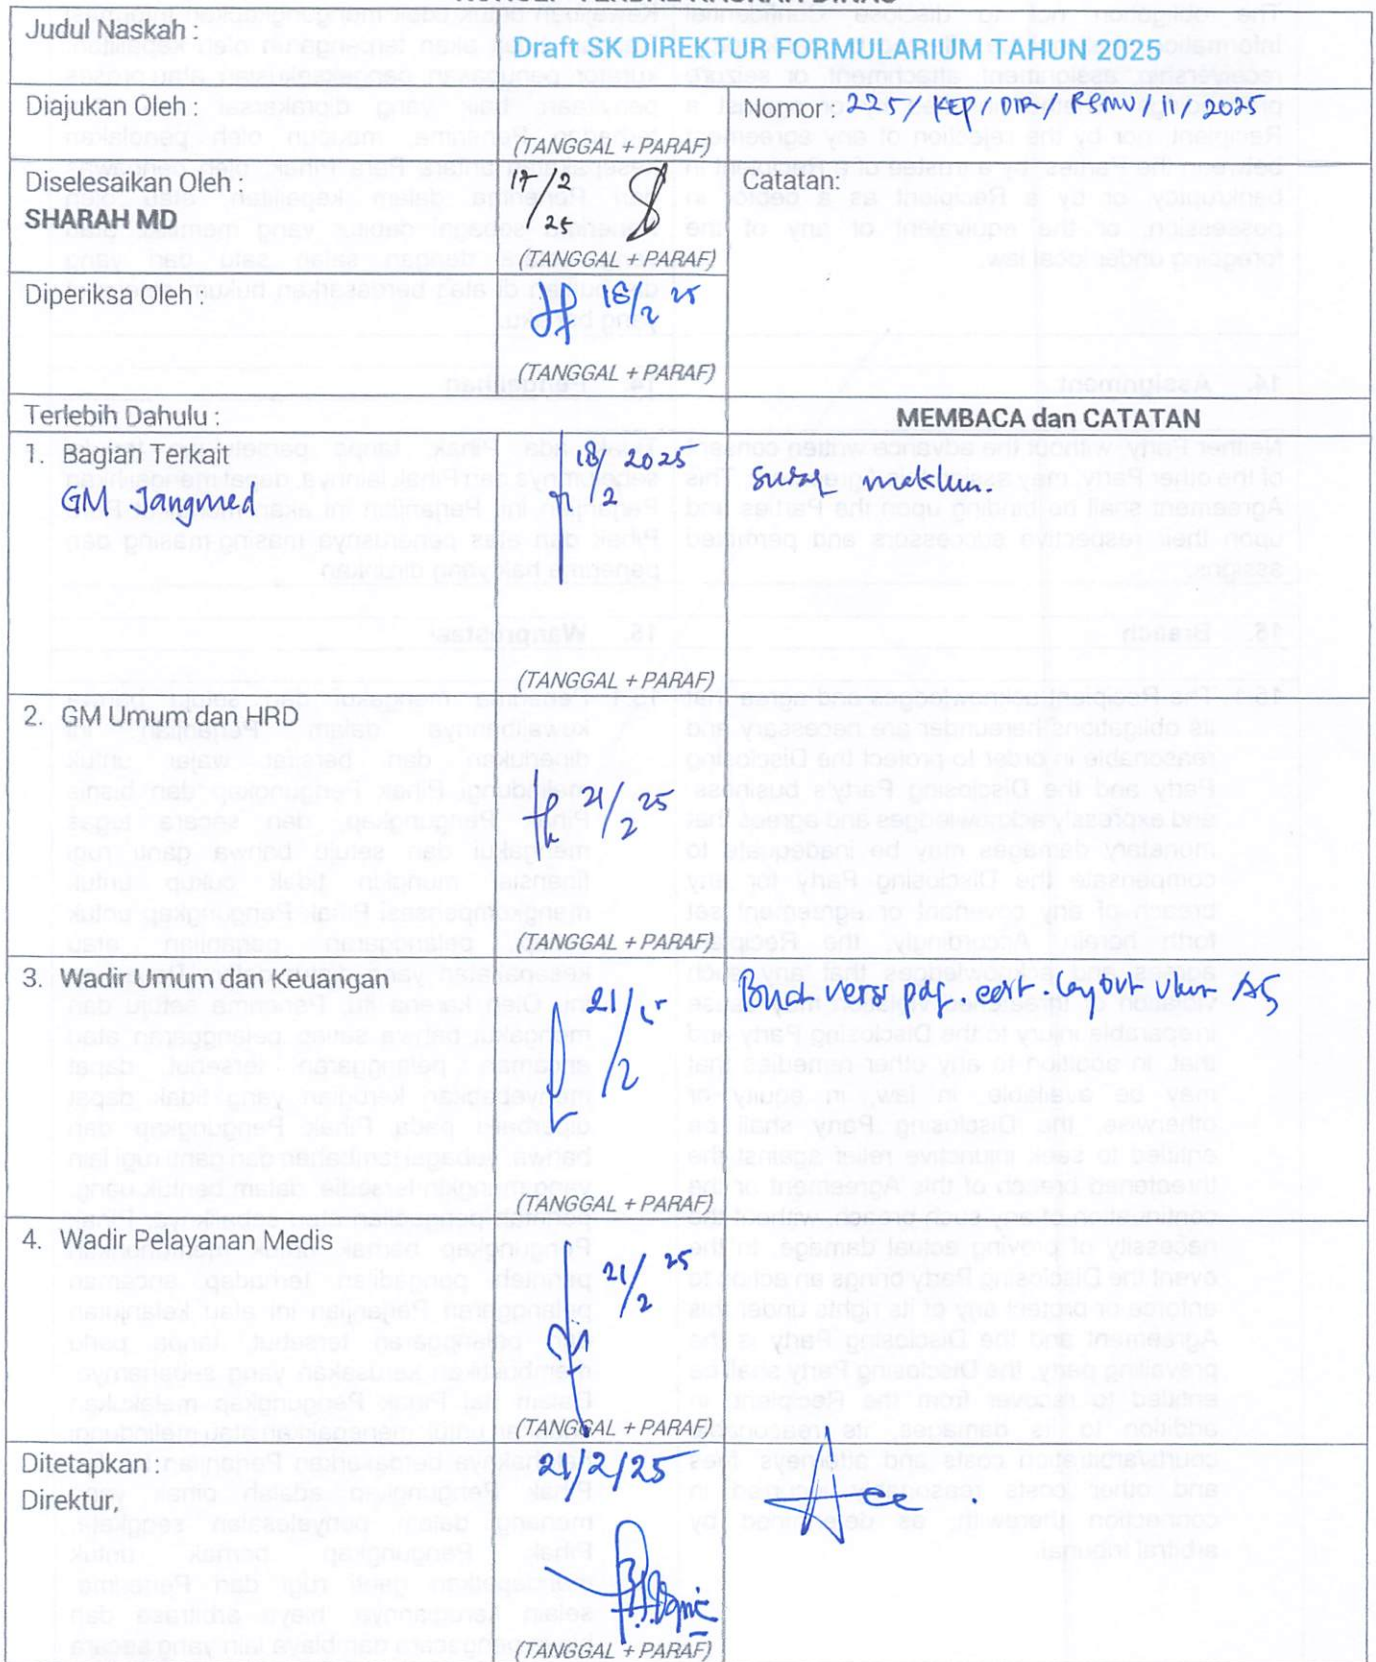 Judul Naskah :
Draft SK DIREKTUR FORMULARIUM TAHUN 2025
Diajukan Oleh :
(TANGGAL + PARAF)
Nomor : 225/KEP/DIR/REMU/II/2025
Diselesaikan Oleh :
SHARAH MD
17/2
/25
(TANGGAL + PARAF)
Catatan:
Diperiksa Oleh :
18/2 25
(TANGGAL + PARAF)
Terlebih Dahulu :
MEMBACA dan CATATAN
1. Bagian Terkait
GM Jangmed
18/2 2025
(TANGGAL + PARAF)
2. GM Umum dan HRD
21/2 25
(TANGGAL + PARAF)
3. Wadir Umum dan Keuangan
21/2
(TANGGAL + PARAF)
Buat versi pdf. edit. layout ukur A5
4. Wadir Pelayanan Medis
21/2 25
(TANGGAL + PARAF)
Ditetapkan :
Direktur,
21/2/25
(TANGGAL + PARAF)
Acc .